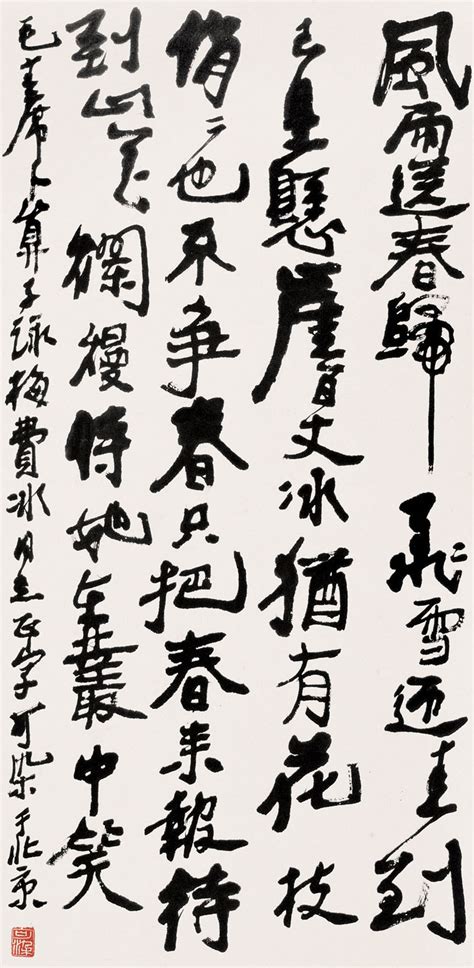 風雨送春歸飛雪迎春到
已是懸崖百丈冰猶有花枝
俏々也不争春只把春来報待
到山花爛熳時她在叢中笑
毛主席卜算子詠梅費冰同志正字可染于北京